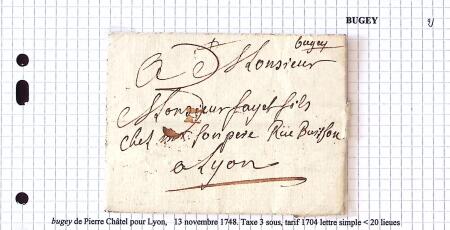 BUGEY
bugey
A Monsieur
Monsieur fayet fils
chez mr. son pere Rue Buisson
a Lyon
bugey de Pierre Châtel pour Lyon, 13 novembre 1748. Taxe 3 sous, tarif 1704 lettre simple < 20 lieues